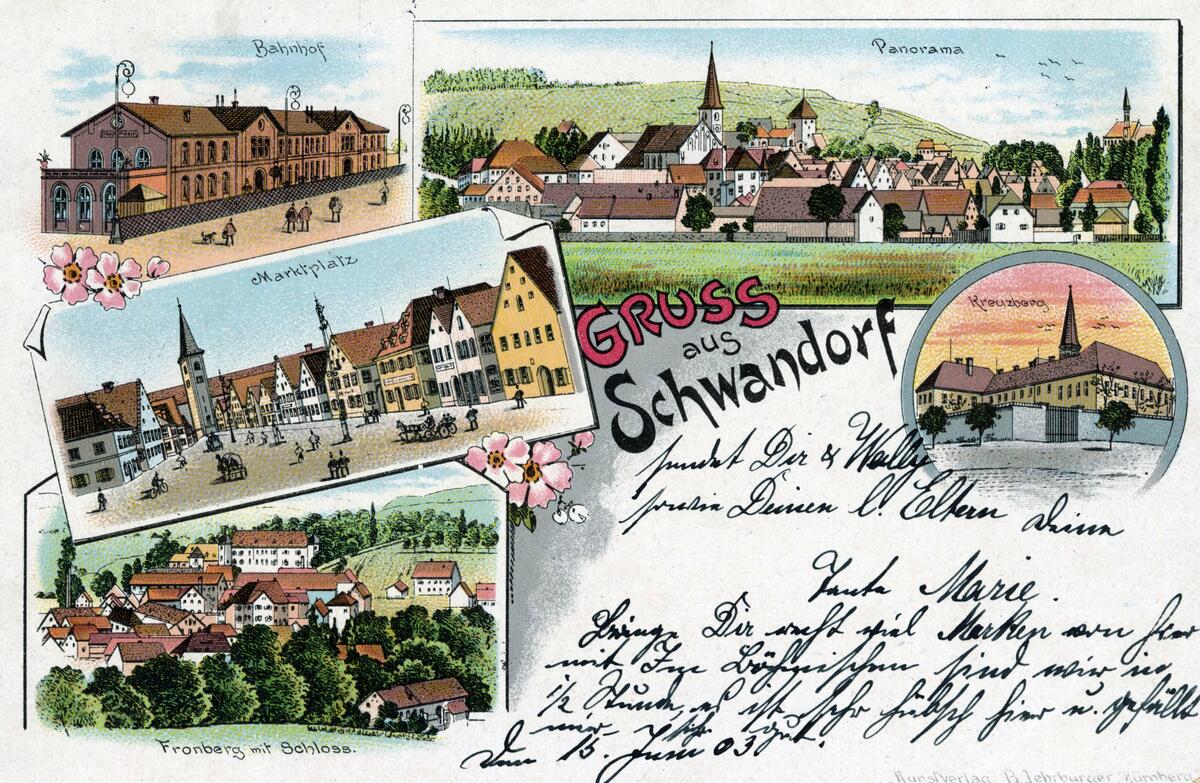 Bahnhof
Panorama
Marktplatz
Kreuzberg
GRUSS
aus
Schwandorf
sendet Dir & Wally
sowie Deinen l. Eltern Deine
Tante Marie.
Bringe Dir recht viel Marken von hier
mit Im Böhmischen sind wir in
1/2 Stunde, es ist sehr hübsch hier u. gefällt
mir sehr gut.
Den 15. Juni 03.
Fronberg mit Schloss.
Kunstverlag B. Lehrburger, Nürnberg